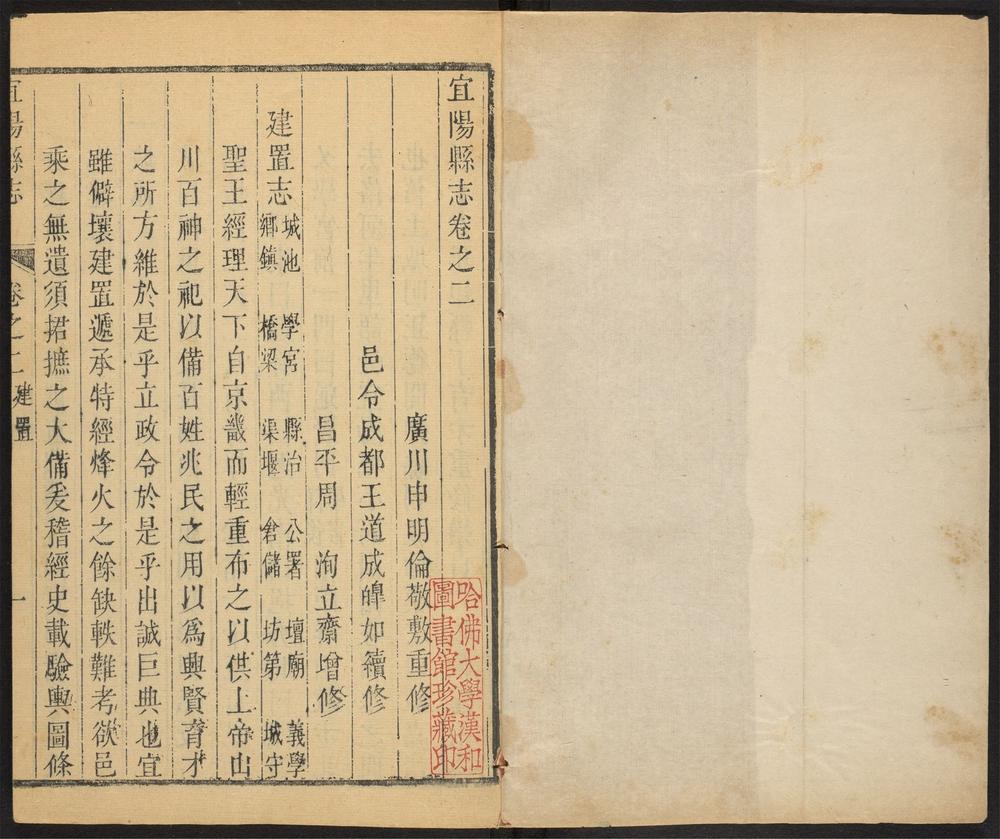 宜陽縣志卷之二
廣川申明倫敬敷重修
邑令成都王道成皞如續修
昌平周　洵立齋增修
建置志 城池 學宮 縣治 公署 壇廟 義學
鄉鎮 橋梁 渠堰 倉儲 坊第 城守
聖王經理天下自京畿而輕重布之以供上帝山
川百神之祀以備百姓兆民之用以為興賢育才
之所方維於是乎立政令於是乎出誠巨典也宜
雖僻壤建置遞承特經烽火之餘缺軼難考欲邑
乘之無遺須捃摭之大備爰稽經史載驗輿圖條
宜陽縣志
卷之二 建置
一
哈佛大學漢和
圖書館珍藏印